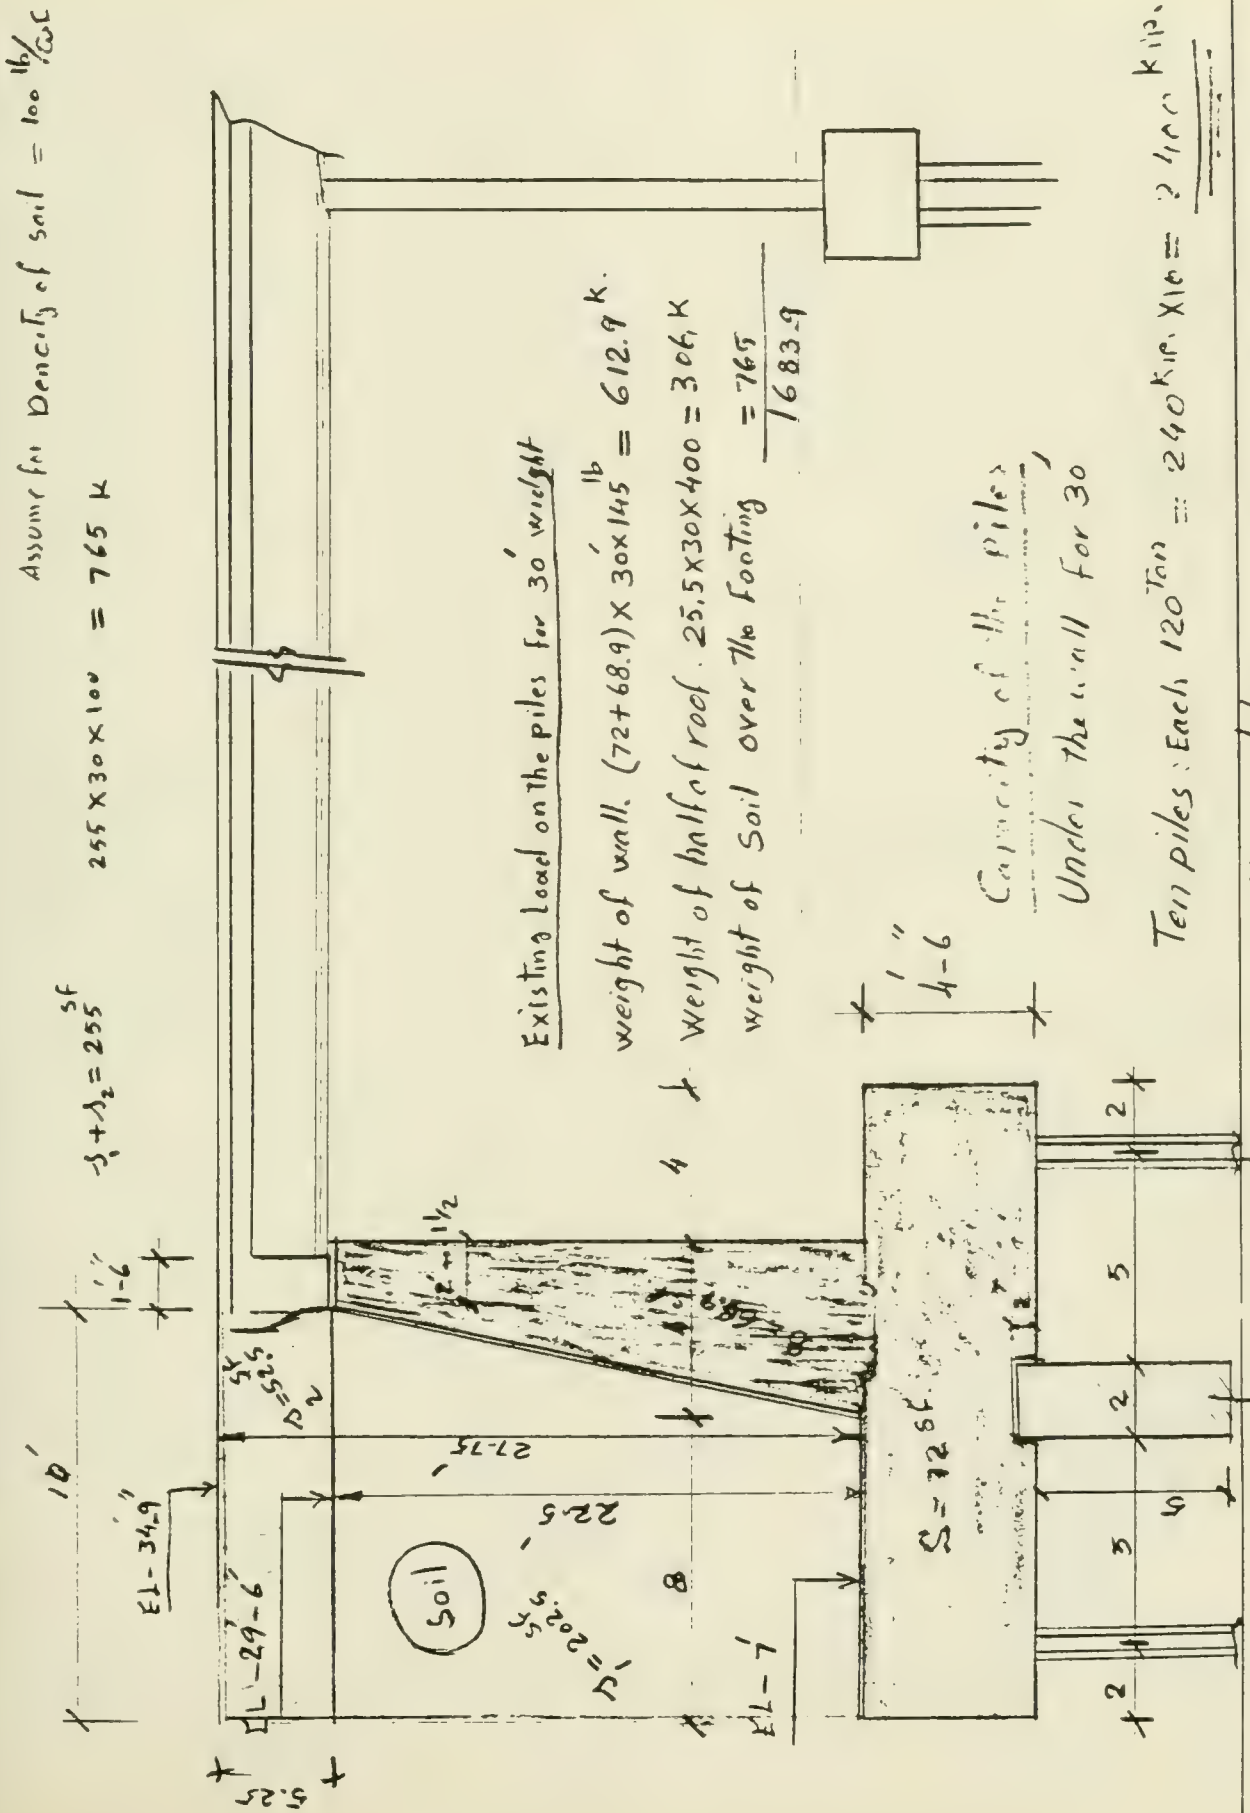 Assume for Dencity of soil = 100 lb/cuc
S₁ + S₂ = 255 sf
255 X 30 X 100 = 765 K
10'
1'-6"
EL - 34'-9"
EL - 29'-6"
5.25
S₂ = 52.5 sf
27.75'
22.5'
Soil
S₁ = 202.5 sf
2' - 1 1/2
68.9
8
8
4
EL - 7'
S = 72 sf
4'-6"
2
5
2
5
2
5
Existing Load on the piles for 30' widght
weight of wall. (72+68.9) X 30' X 145 lb = 612.9 K.
Weight of half of roof. 25.5 X 30 X 400 = 306, K
weight of Soil over The Footing = 765
1683.9
Capacity of the piles
Under the wall for 30'
Ten piles: Each 120 Ton = 240 Kip. X 10 = 2400 Kip.